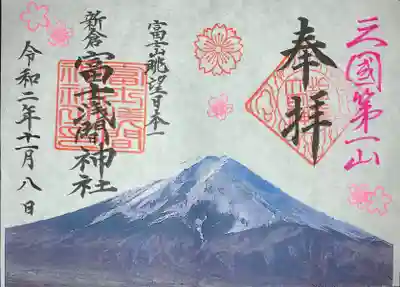 三國第一山
奉拝
富士山眺望日本一
新倉
富士浅間神社
令和二年十一月八日